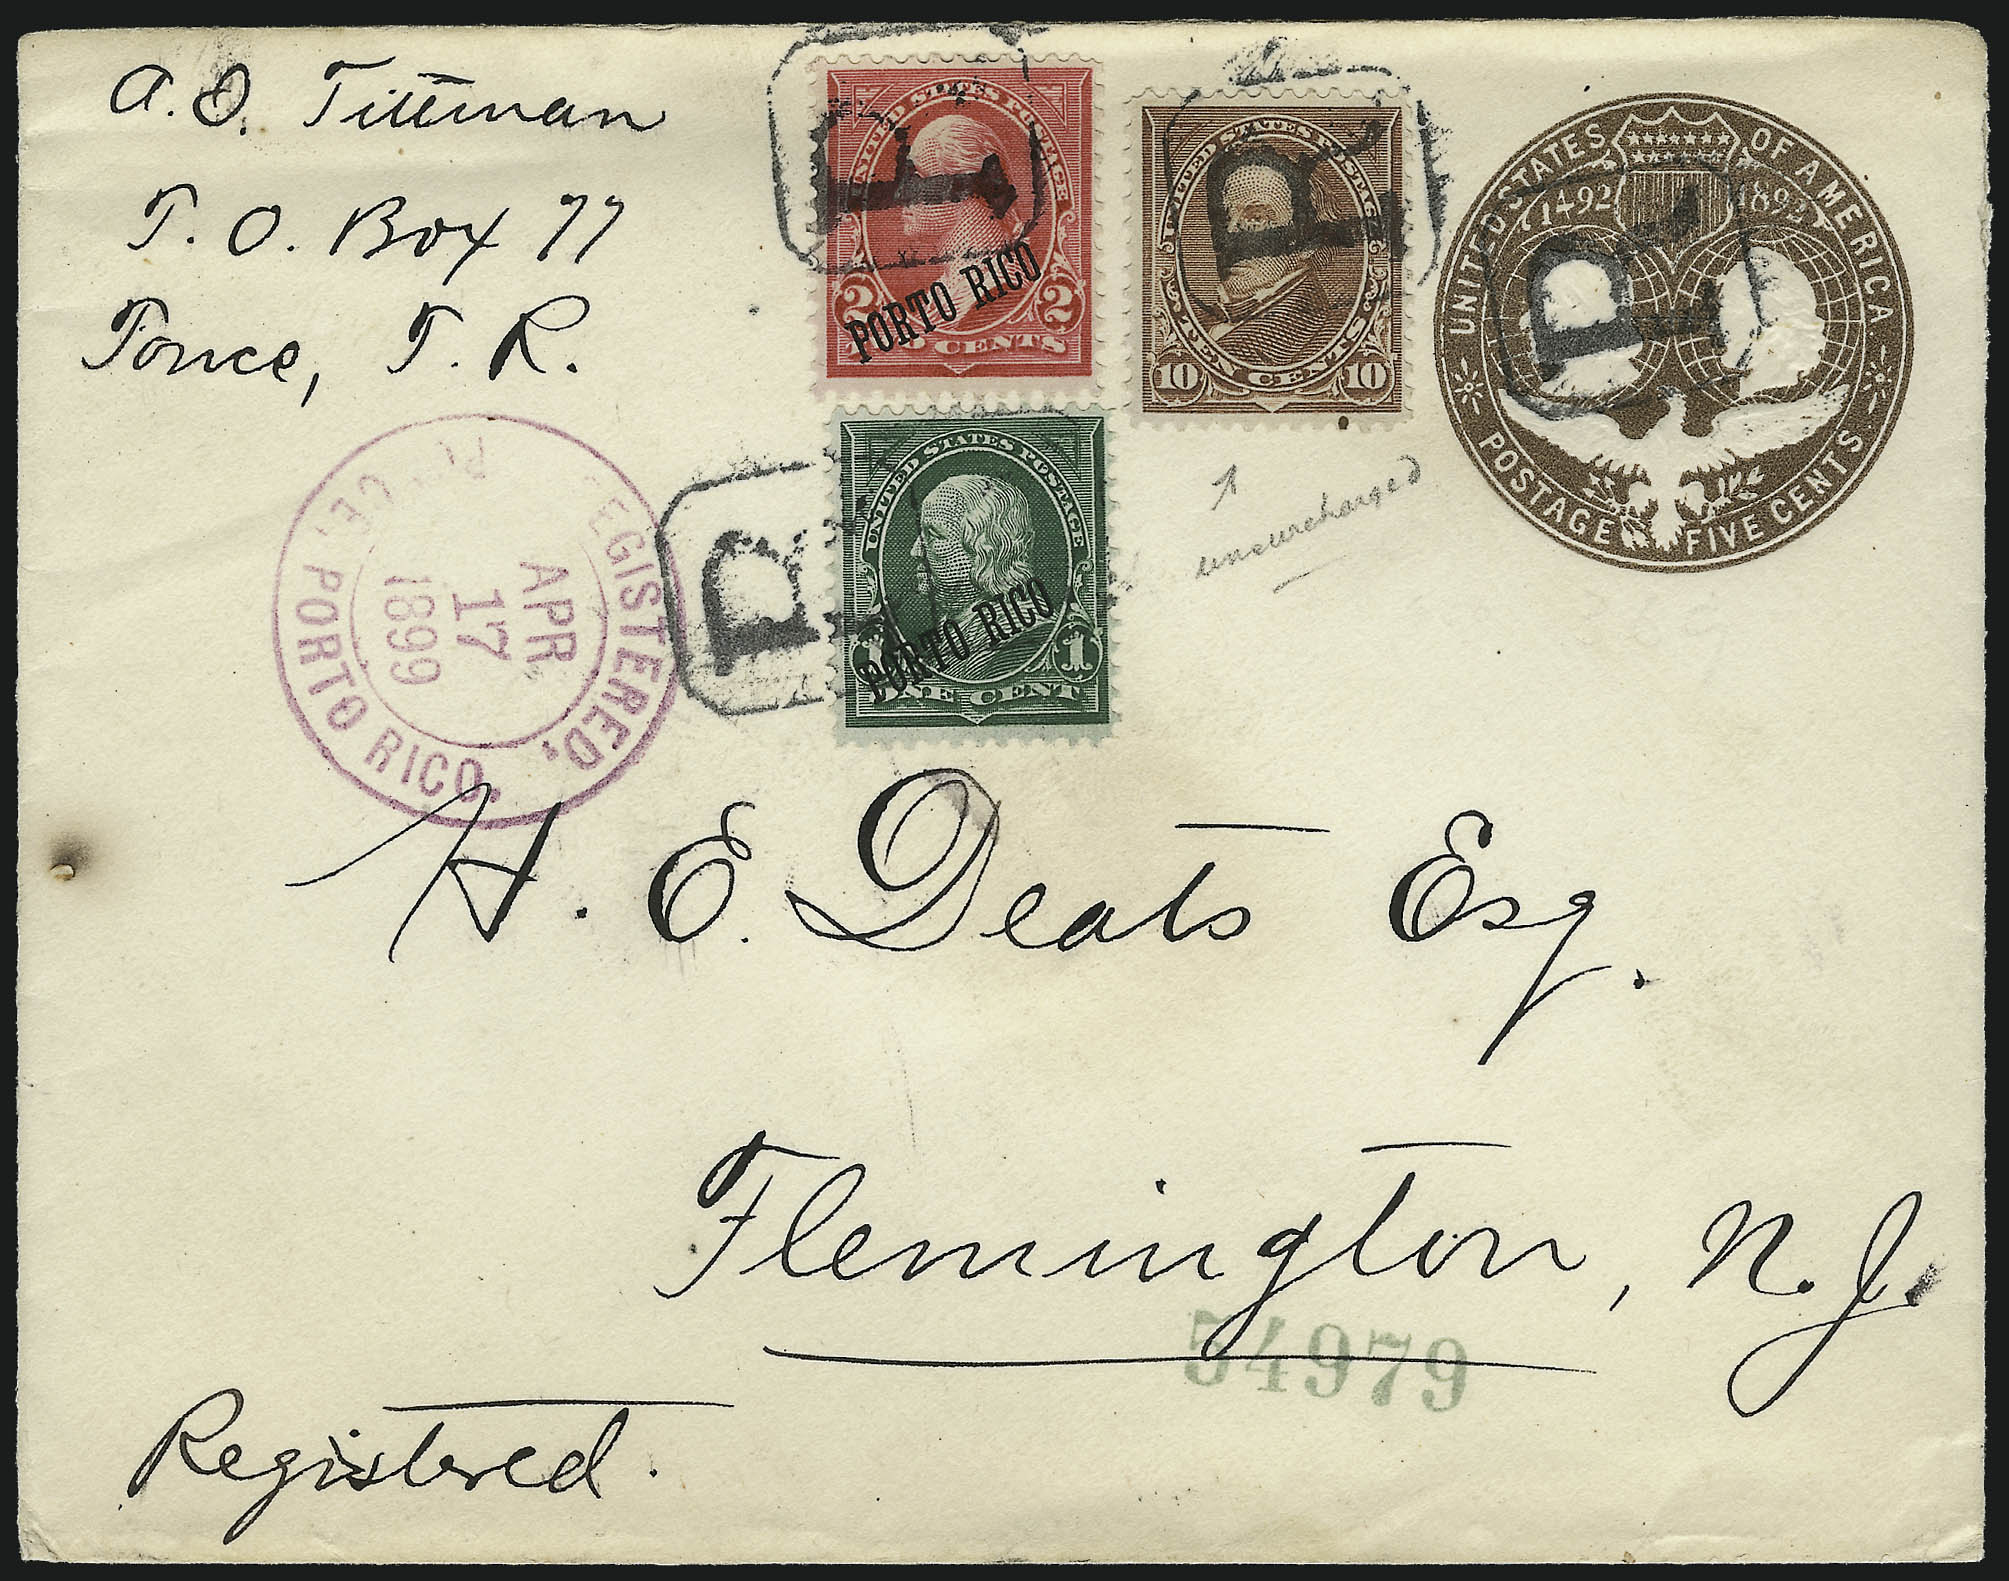 A. O. Tittman
P. O. Box 77
Ponce, P. R.
UNITED STATES POSTAGE
2 2
TWO CENTS
PORTO RICO
UNITED STATES POSTAGE
10 TEN CENTS 10
UNITED STATES OF AMERICA
1492 1892
POSTAGE FIVE CENTS
UNITED STATES POSTAGE
1 1
ONE CENT
PORTO RICO
REGISTERED,
APR
17
1899
PONCE, PORTO RICO.
H. E. Deats Esq.
Flemington, N. J.
54979
Registered.